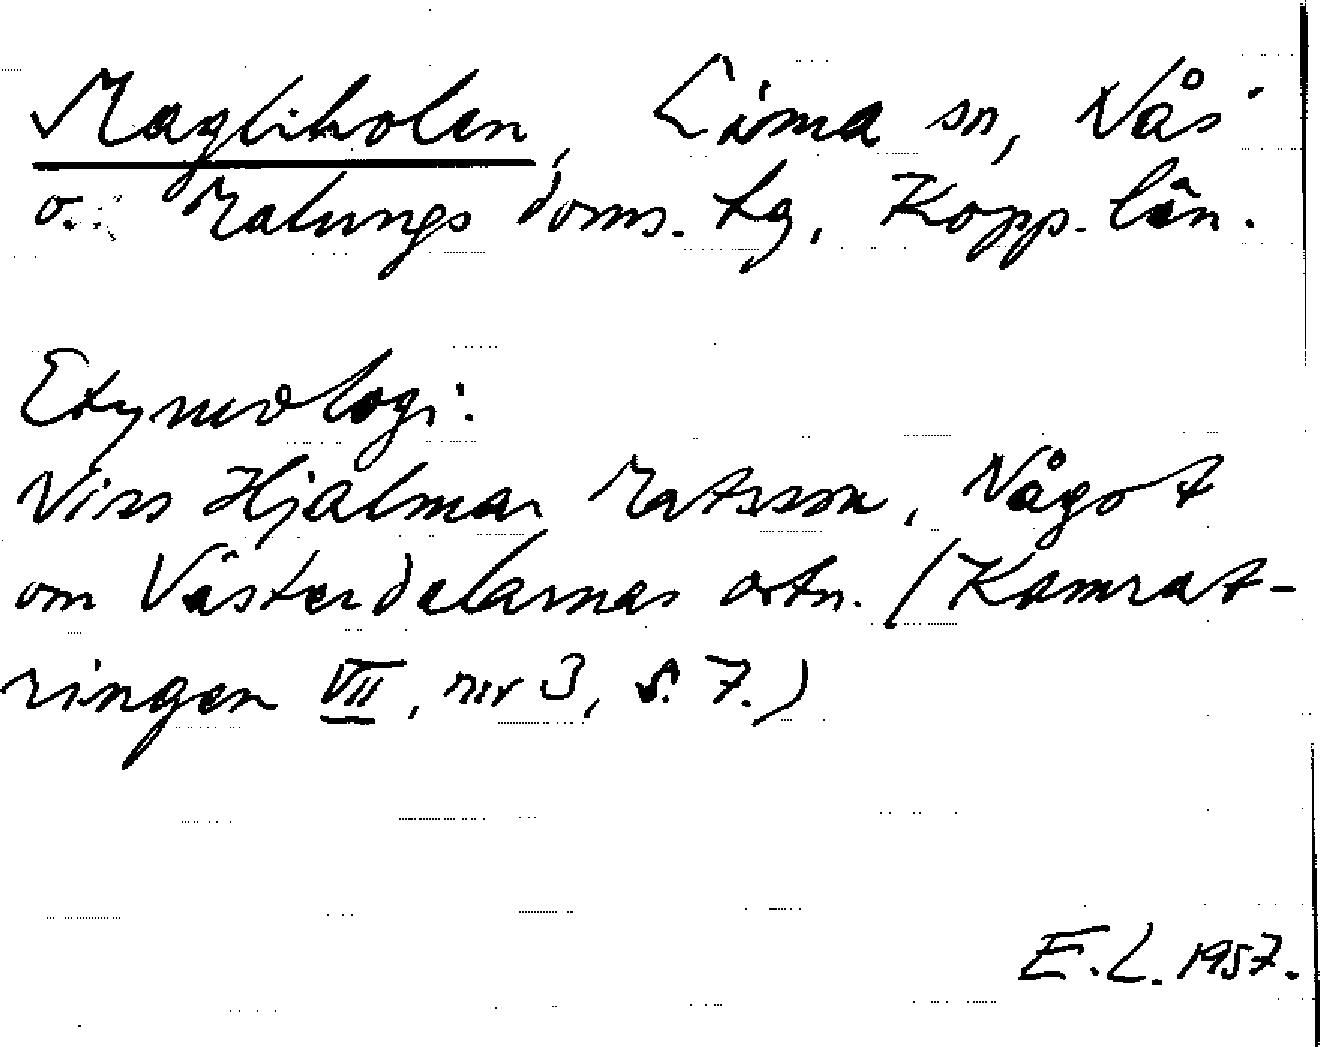 Magliholen, Lima sn, Nås
o. Malungs doms. tg, Kopp. län.
Etymologi:
Viss Hjalmar Matsson, Något
om Västerdalarnas ortn. (Kamrat-
ringen VII, nr 3, s. 7.)
E.L. 1957.